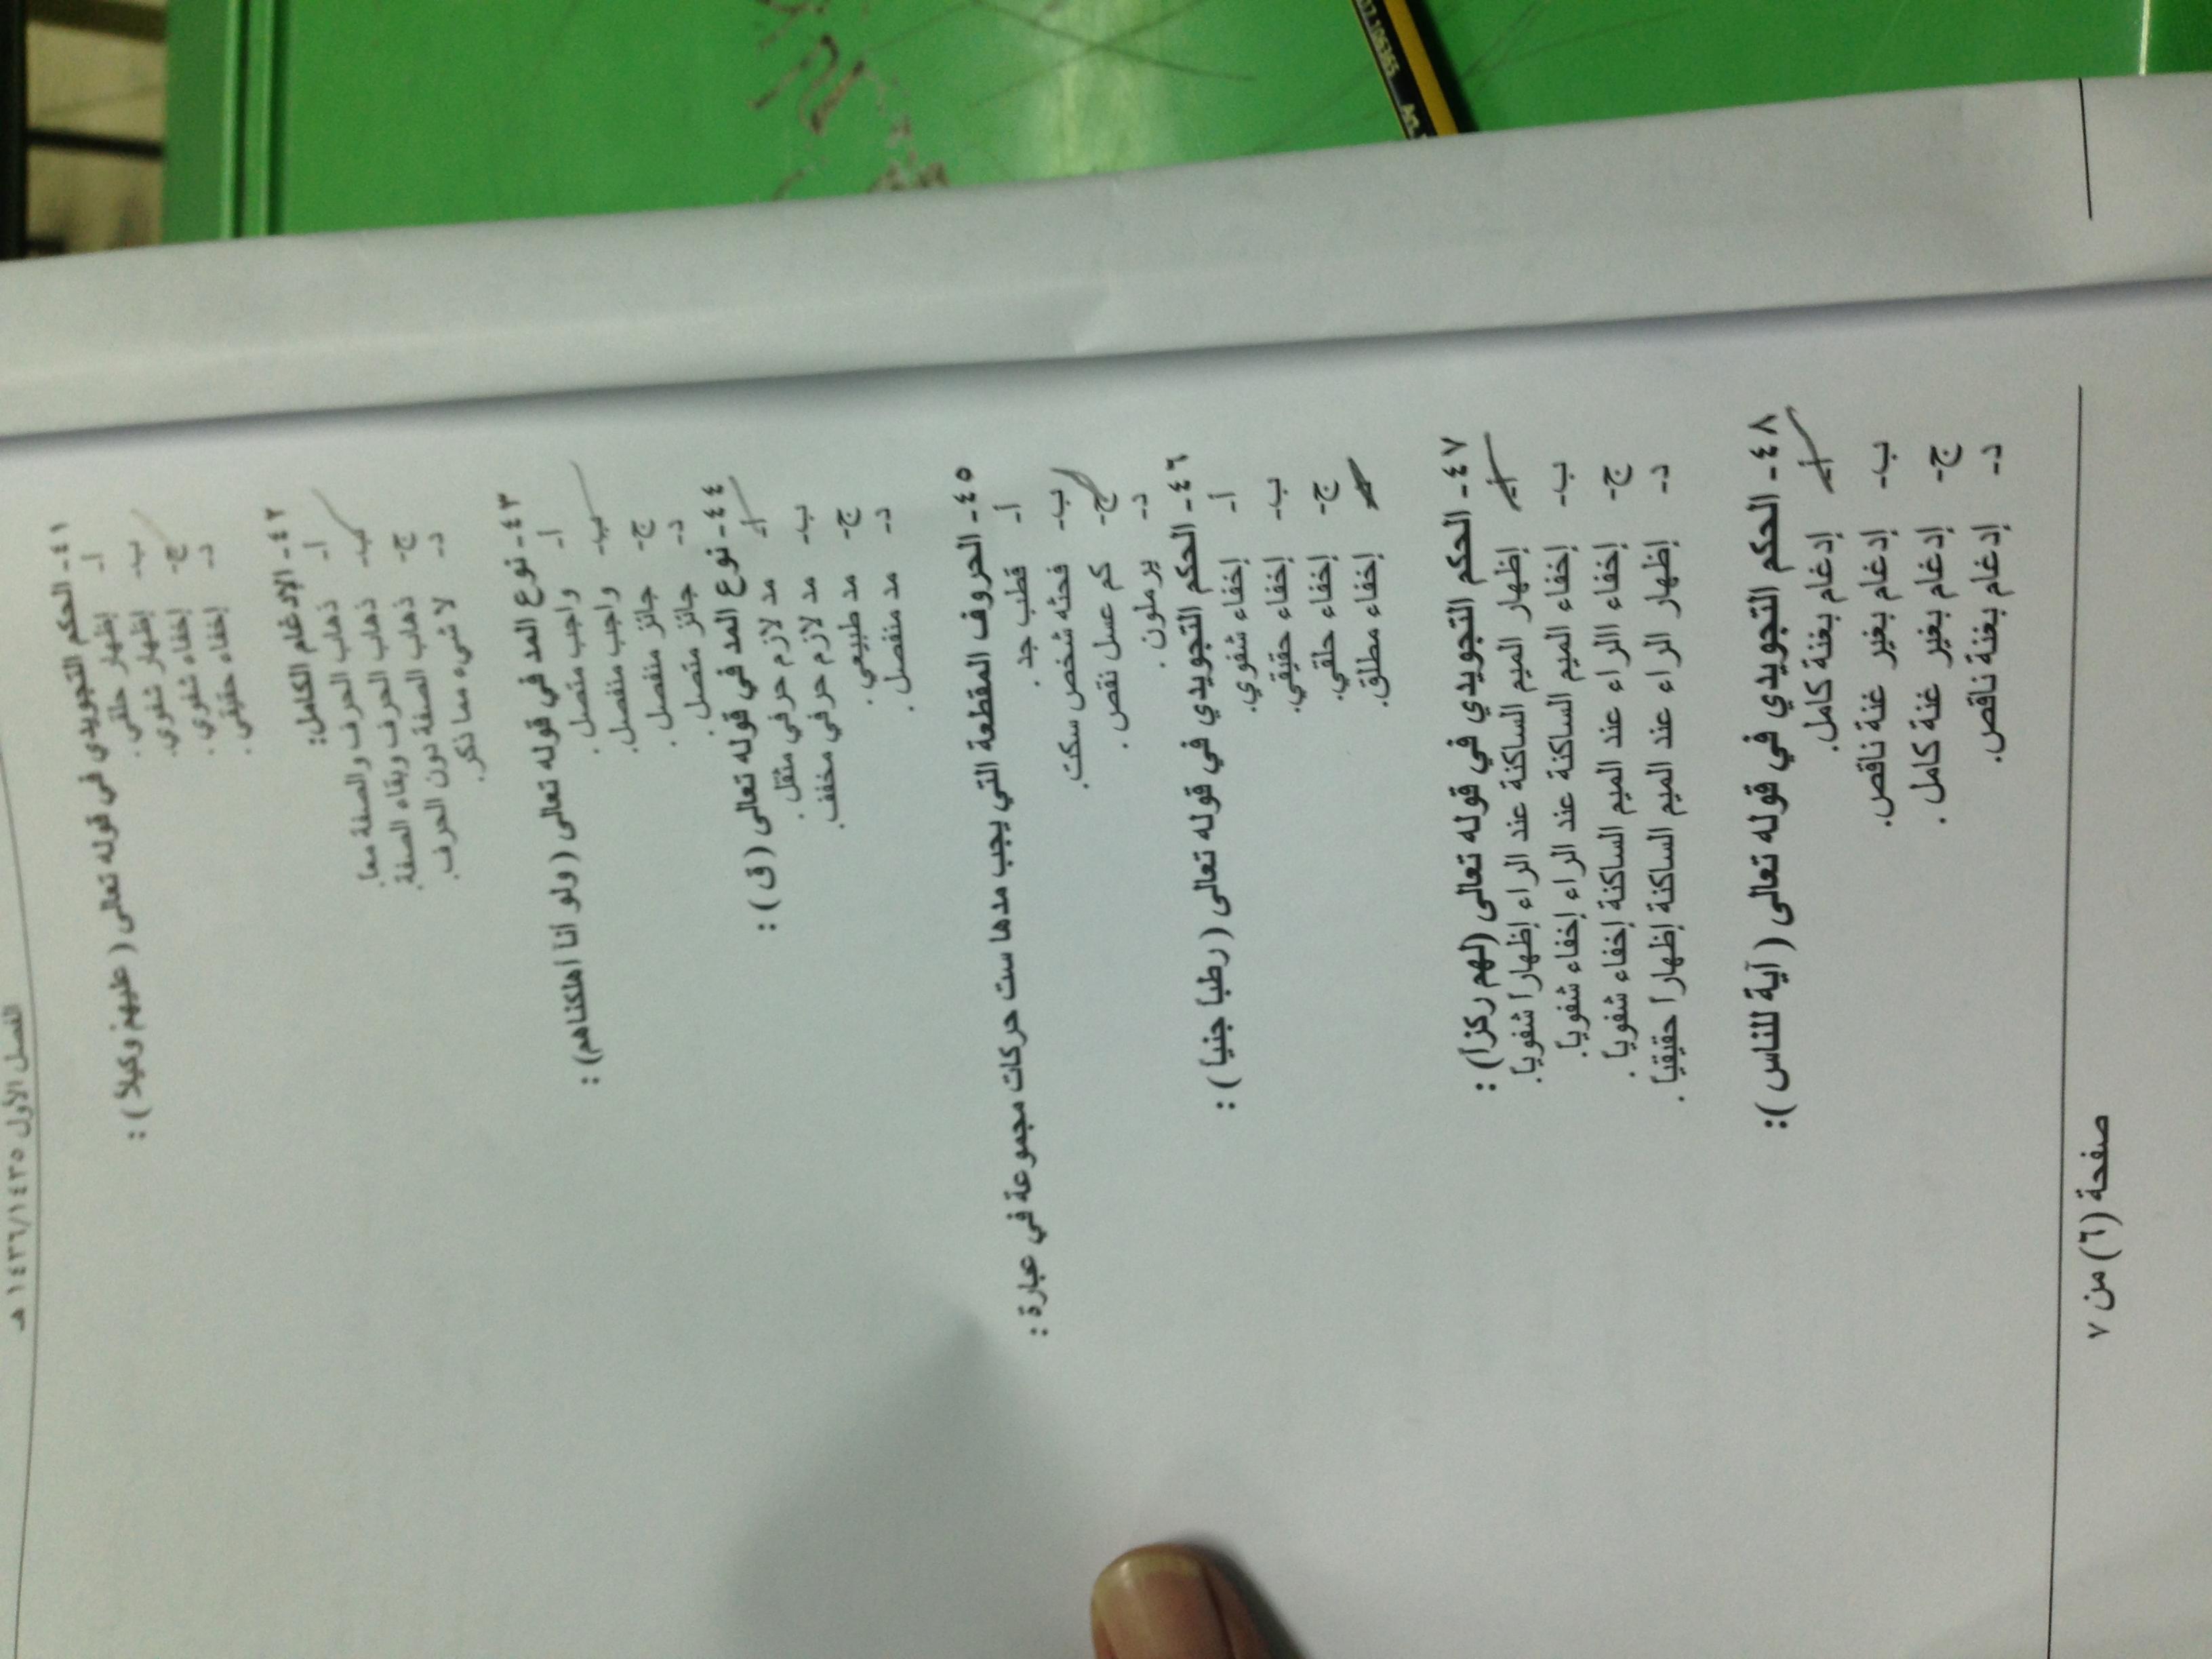 الفصل الأول ١٤٣٥/١٤٣٦ هـ
٤١- الحكم التجويدي في قوله تعالى ( عليهم وكيلاً ) :
أ- إظهار حلقي .
ب- إظهار شفوي.
ج- إخفاء شفوي .
د- إخفاء حقيقي .
٤٢- الإدغام الكامل:
أ- ذهاب الحرف والصفة معاً.
ب- ذهاب الحرف وبقاء الصفة.
ج- ذهاب الصفة دون الحرف.
د- لا شيء مما ذكر.
٤٣- نوع المد في قوله تعالى ( ولو أنا أهلكناهم) :
أ- واجب متصل .
ب- واجب منفصل.
ج- جائز منفصل .
د- جائز متصل .
٤٤- نوع المد في قوله تعالى ( ق ) :
أ- مد لازم حرفي مثقل .
ب- مد لازم حرفي مخفف.
ج- مد طبيعي .
د- مد منفصل .
٤٥- الحروف المقطعة التي يجب مدها ست حركات مجموعة في عبارة :
أ- قطب جد .
ب- فحثه شخص سكت.
ج- كم عسل نقص .
د- يرملون .
٤٦- الحكم التجويدي في قوله تعالى ( رطباً جنياً ) :
أ- إخفاء شفوي.
ب- إخفاء حقيقي.
ج- إخفاء حلقي.
إخفاء مطلق.
٤٧- الحكم التجويدي في قوله تعالى (لهم ركزاً) :
أ- إظهار الميم الساكنة عند الراء إظهاراً شفوياً.
ب- إخفاء الميم الساكنة عند الراء إخفاء شفوياً.
ج- إخفاء االراء عند الميم الساكنة إخفاء شفوياً .
د- إظهار الراء عند الميم الساكنة إظهاراً حقيقياً .
٤٨- الحكم التجويدي في قوله تعالى ( آية للناس ):
أ- إدغام بغنة كامل.
ب- إدغام بغير غنة ناقص.
ج- إدغام بغير غنة كامل .
د- إدغام بغنة ناقص.
صفحة (٦) من ٧